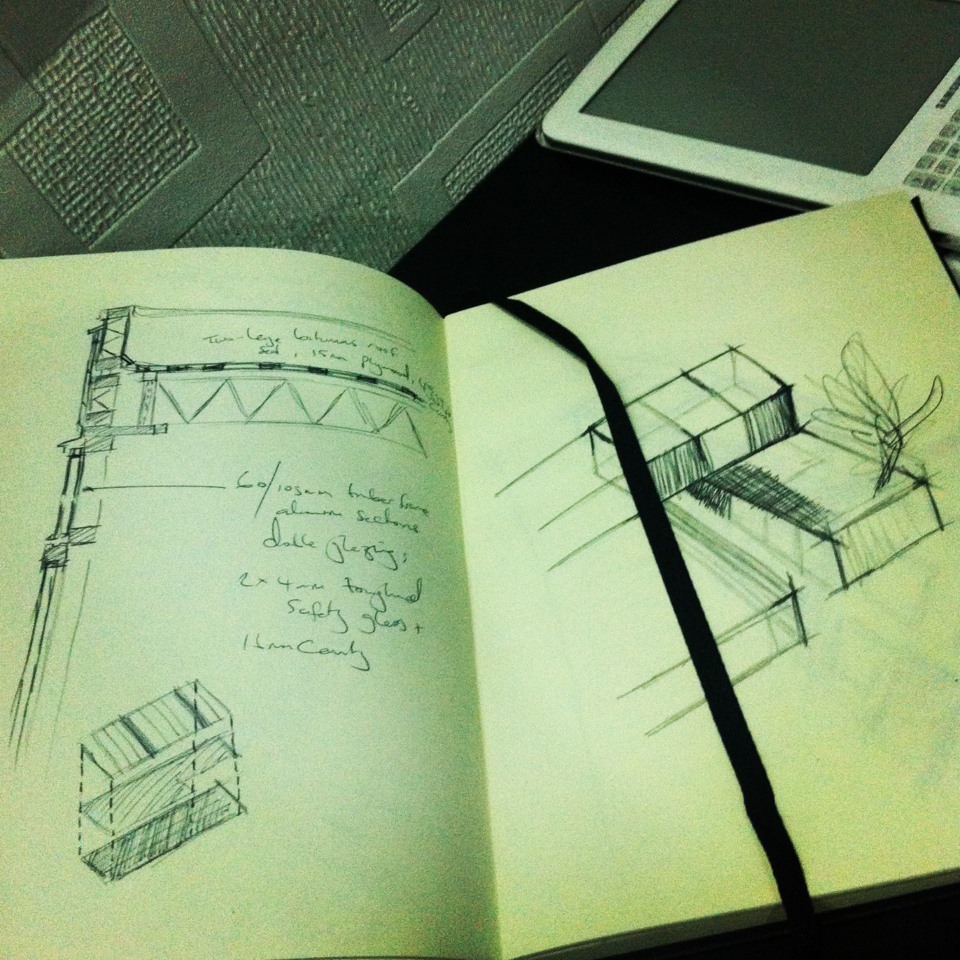 Two-layer bitumen roof
seal, 15mm plywood,
60/105mm timber frame
aluminium sections
double glazing;
2 x 4mm toughened
safety glass +
16mm Cavity